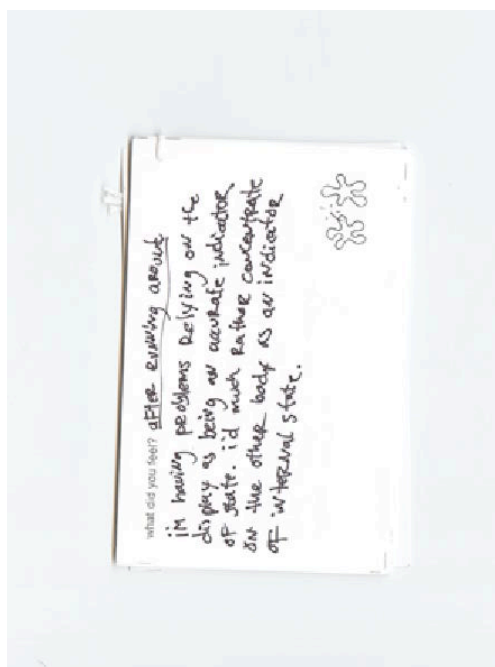 what did you feel? after running around
im having problems relying on the
display as being an accurate indicator
of state. i'd much rather concentrate
on the other body as an indicator
of internal state.